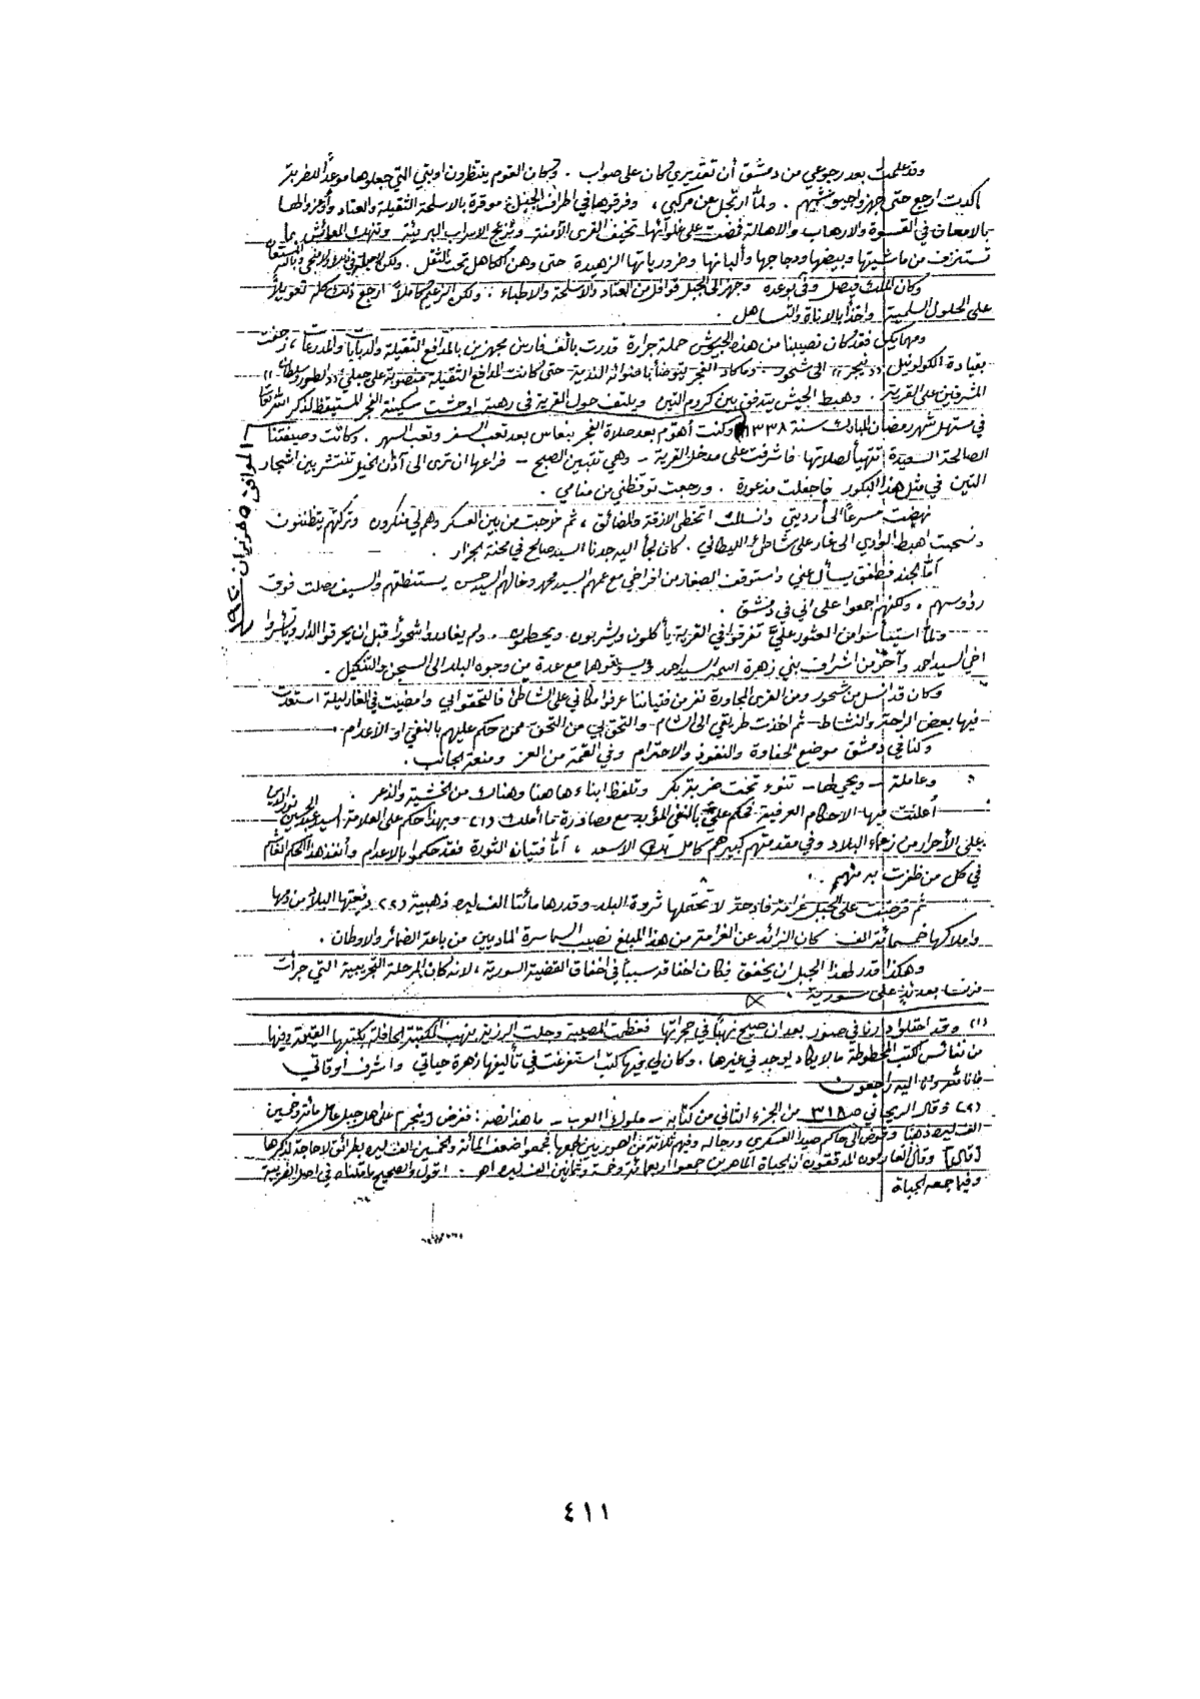 وقد علمت بعد رجوعي من دمشق أن تقديري كان على صواب . وكان القوم ينتظرون اوبتي التي جعلوها موعداً للضربة
ما كدت ارجع حتى جهزوا جيوشهم . ولما ارتجل عن مركبي ، وفرقوها في اطراف الجبل موقرة بالاسلحة الثقيلة والعتاد وأوعزوا لها
بالامعان في القسوة والارهاب والاهالة فمضت على غلوائها تخيف القرى الآمنة وتزعج الاسراب البريئة وتنهك العائش بما
تستنزف من ماشيتها وبيضها ودجاجها وألبانها وضرورياتها الزهيدة حتى وهن الكاهل تحت الثقل . ولكن
وكان الملك فيصل وفى بوعده وجهز الى الجبل قوافل من العتاد والاسلحة والاطباء : ولكن الزعيم كاملاً ارجع ذلك كله تعويلاً
على الحلول السلمية واخذاً بالاناة والتساهل .
ومهما يكن فقد كان نصيبنا من هذه الجيوش حملة جرارة قدرت بألف فارس مجهزين بالمدافع الثقيلة والدبابات والمدرعات ، زحفت
بقيادة الكولونيل ((نيجر)) الى شحور . وما كاد الفجر يتوضأ بأضوائه الندية حتى كانت المدافع الثقيلة منصوبة على جبلي ((الطور وسلطان))
المشرفين على القرية . وهبط الجيش يتدفق بين كروم التين ويلتف حول القرية في رهبة اوحشت سكينة الفجر المستيقظ لذكر الله تعالى
في مستهل شهر رمضان المبارك سنة ١٣٣٨ وكنت أهوّم بعد صلاة الفجر بنعاس بعد تعب السفر وتعب السهر . وكانت وصيفتنا
الموافق ٥ حزيران ١٩٢٠
الصالحة السعيدة تتهيأ لصلاتها فأشرفت على مدخل القرية - وهي تتبين الصبح - فراعها ان ترى الى آذان الخيل تنتشر بين اشجار
التين في مثل هذا البكور فأجفلت مذعورة . ورجعت توقظني من منامي .
نهضت مسرعاً الى أرديتي وانسللت اتخطى الازقة والمضائق ، ثم خرجت من بين العسكر وهم لي منكرون وتركتهم يتظننون
وانسحبت اهبط الوادي الى غار على شاطئ الليطاني . كان لجأ اليه جدنا السيد صالح في محنة الجزار .
أما الجند فطفق يسأل عني واستوقف الصغار من افراخي مع عمهم السيد محمد وخالهم السيد حسن يستنطقهم والسيف يصلت فوق
رؤوسهم . ولكنهم اجمعوا على اني في دمشق .
ولما استيأسوا من العثور عليّ تفرقوا في القرية يأكلون ويشربون ويحطمون . ولم يغادروا شحور قبل ان يحرقوا الدار ويأسروا
اخي السيد احمد وآخر من اشراف بني زهرة اسمه السيد احمد مع عدة من وجوه البلد الى السجن والتنكيل .
وكان قد انسل من شحور ومن القرى المجاورة نفر من فتياننا عرفوا مكاني على الشاطئ فالتحقوا بي وامضيت في الغار ليلة استعدت
فيها بعض الراحة والنشاط - ثم اخذت طريقي الى الشام - والتحق بي من التحق ممن حكم عليهم بالنفي او الاعدام .
وكنا في دمشق موضع الحفاوة والنفوذ والاحترام وفي القمة من العز ومنعة الجانب .
وعاملة - ويحي لها - تنوء تحت ضربة بكر وتلفظ ابناءها هنا وهناك من الخشية والذعر .
أعلنت فيها الاحكام العرفية فحكم عليّ بالنفي المؤبد مع مصادرة ما أملك (١) وبهذا حكم على العلامة السيد عبد الحسين نور الدين
وعلى الأحرار من زعماء البلاد وفي مقدمتهم كبيرهم كامل بك الاسعد ، أما فتيان الثورة فقد حكموا بالاعدام وأنفذ هذا الحكم الغاشم
في كل من ظفرت به منهم .
ثم فرضت على الجبل غرامة فادحة لا تحتملها ثروة البلد وقدرها مائتا الف ليرة ذهبية (٢) دفعتها البلاد من دمها
واملاكها خمسمائة الف كان الزائد عن الغرامة من هذا المبلغ نصيب السماسرة الماديين من باعة الضمائر والاوطان .
وهكذا قدر لهذا الجبل ان يخفق فكان اخفاقه سبباً في اخفاق القضية السورية ، لانه كان المرحلة التجريبية التي جرأت
فرنسا بعدئذ على سورية .
(١) وقد احتلوا دارنا في صور بعد ان صيح نهباً في حجراتها فعظمت المصيبة وجلت الرزية بنهب المكتبة الحافلة بكتبها القيمة وفيها
من نفائس الكتب المخطوطة ما لا يكاد يوجد في غيرها . وكان لي فيها كتب استفرغت في تأليفها زهرة حياتي واشرف أوقاتي
فانا لله وانا اليه راجعون
(٢) وقال الريحاني ص ٣١٨ من الجزء الثاني من كتابه - ملوك العرب - ما هذا نصه : ففرض نيجر على اهل جبل عامل مائة وخمسين
الف ليرة ذهباً وفوض الى حاكم صيدا العسكري ورجاله وفيهم ثلاثة من السوريين لجمعها فجمعوا ضعف المائة والخمسين الف ليرة بطرائق لا حاجة لذكرها
[قال] وقال العارفون المدققون ان الجباة الماهرين جمعوا اربعمائة وخمسة وثمانين الف ليرة اهـ . اقول والصحيح ما قلناه في اصل الضريبة
وفيما جمعه الجباة
٤١١